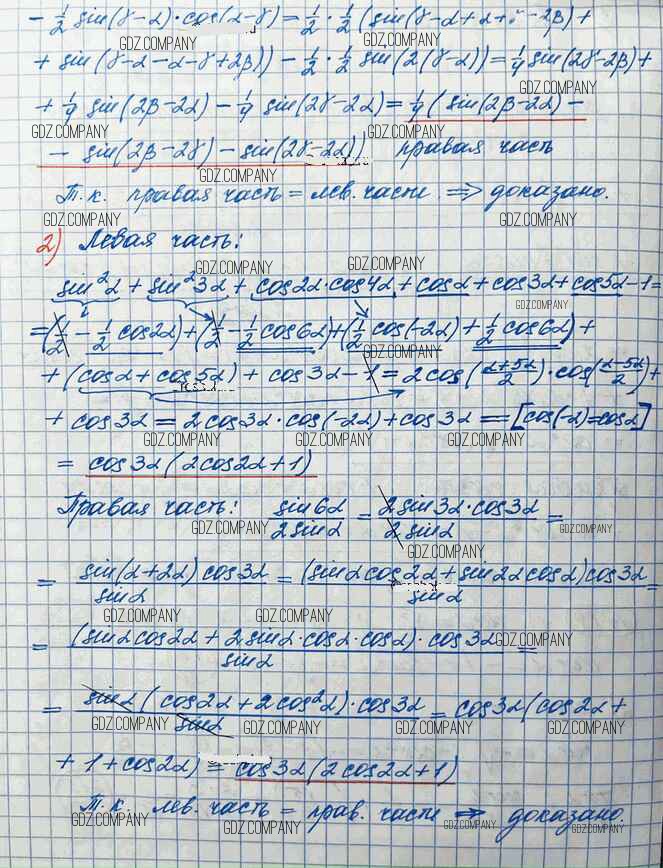 - 1/2 sin(γ-α)·cos(α-γ) = 1/2 · 1/2 (sin(γ-α+α+γ-2β) +
GDZ.COMPANY GDZ.COMPANY
+ sin(γ-α-α-γ+2β)) - 1/2 · 1/2 sin(2(γ-α)) = 1/4 sin(2γ-2β) +
GDZ.COMPANY
+ 1/4 sin(2β-2α) - 1/4 sin(2γ-2α) = 1/4 (sin(2β-2α) -
GDZ.COMPANY GDZ.COMPANY
- sin(2β-2γ) - sin(2γ-2α)) правая часть
GDZ.COMPANY
Т.к. правая часть = лев. части ⇒ доказано.
GDZ.COMPANY GDZ.COMPANY
2) Левая часть:
GDZ.COMPANY GDZ.COMPANY
sin²α + sin²3α + cos2α·cos4α + cosα + cos3α + cos5α - 1 =
GDZ.COMPANY
= (1/2 - 1/2 cos2α) + (1/2 - 1/2 cos6α) + (1/2 cos(-2α) + 1/2 cos6α) +
GDZ.COMPANY
+ (cosα + cos5α) + cos3α - 1 = 2cos((α+5α)/2)·cos((α-5α)/2) +
+ cos3α = 2cos3α·cos(-2α) + cos3α == [cos(-α)=cosα]
GDZ.COMPANY GDZ.COMPANY GDZ.COMPANY
= cos3α(2cos2α+1)
Правая часть: sin6α/2sinα = 2sin3α·cos3α/2sinα =
GDZ.COMPANY GDZ.COMPANY
GDZ.COMPANY
= sin(α+2α)cos3α/sinα = (sinαcos2α + sin2αcosα)cos3α/sinα =
GDZ.COMPANY GDZ.COMPANY
= (sinαcos2α + 2sinα·cosα·cosα)·cos3α/sinα =
GDZ.COMPANY
= sinα(cos2α + 2cos²α)·cos3α/sinα = cos3α(cos2α +
GDZ.COMPANY GDZ.COMPANY GDZ.COMPANY GDZ.COMPANY
+ 1 + cos2α) = cos3α(2cos2α+1)
Т.к. лев. часть = прав. части ⇒ доказано.
GDZ.COMPANY GDZ.COMPANY GDZ.COMPANY GDZ.COMPANY